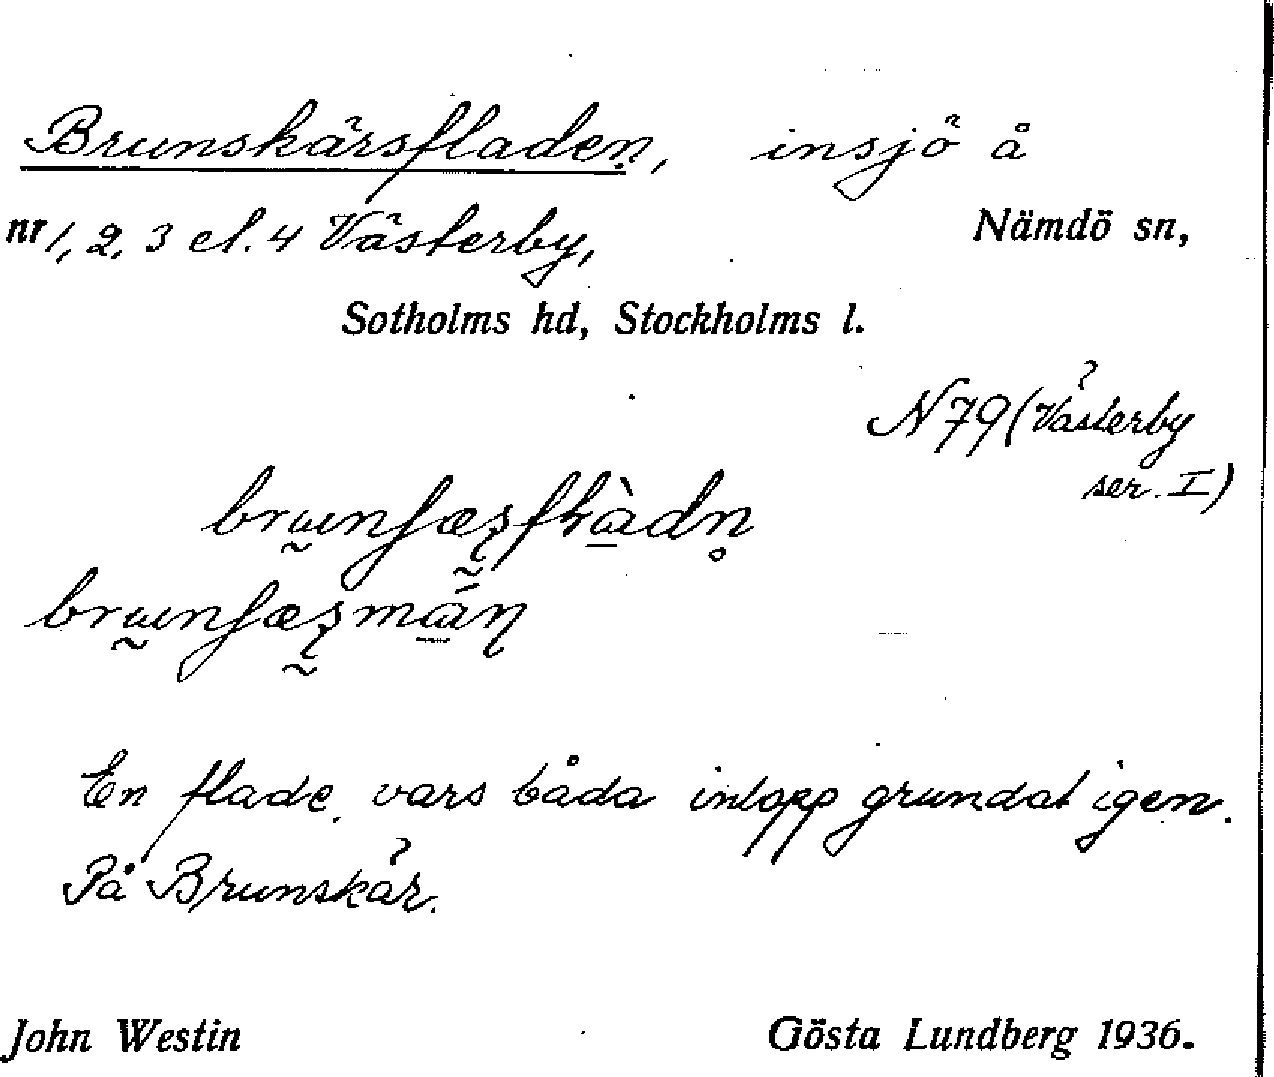 Brunskärsfladen, insjö å
nr 1, 2, 3 el. 4 Västerby, Nämdö sn,
Sotholms hd, Stockholms l.
N 79 (Västerby
ser. I)
En flade, vars båda inlopp grundat igen.
På Brunskär.
John Westin Gösta Lundberg 1936.